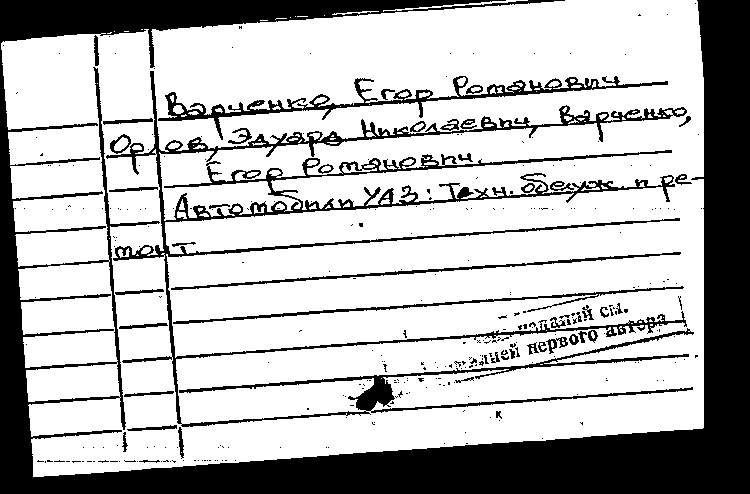 Варченко, Егор Романович
Орлов, Эдуард Николаевич, Варченко,
Егор Романович.
Автомобили УАЗ: Техн. обслуж. и ре-
монт.
изданий см.
первого автора